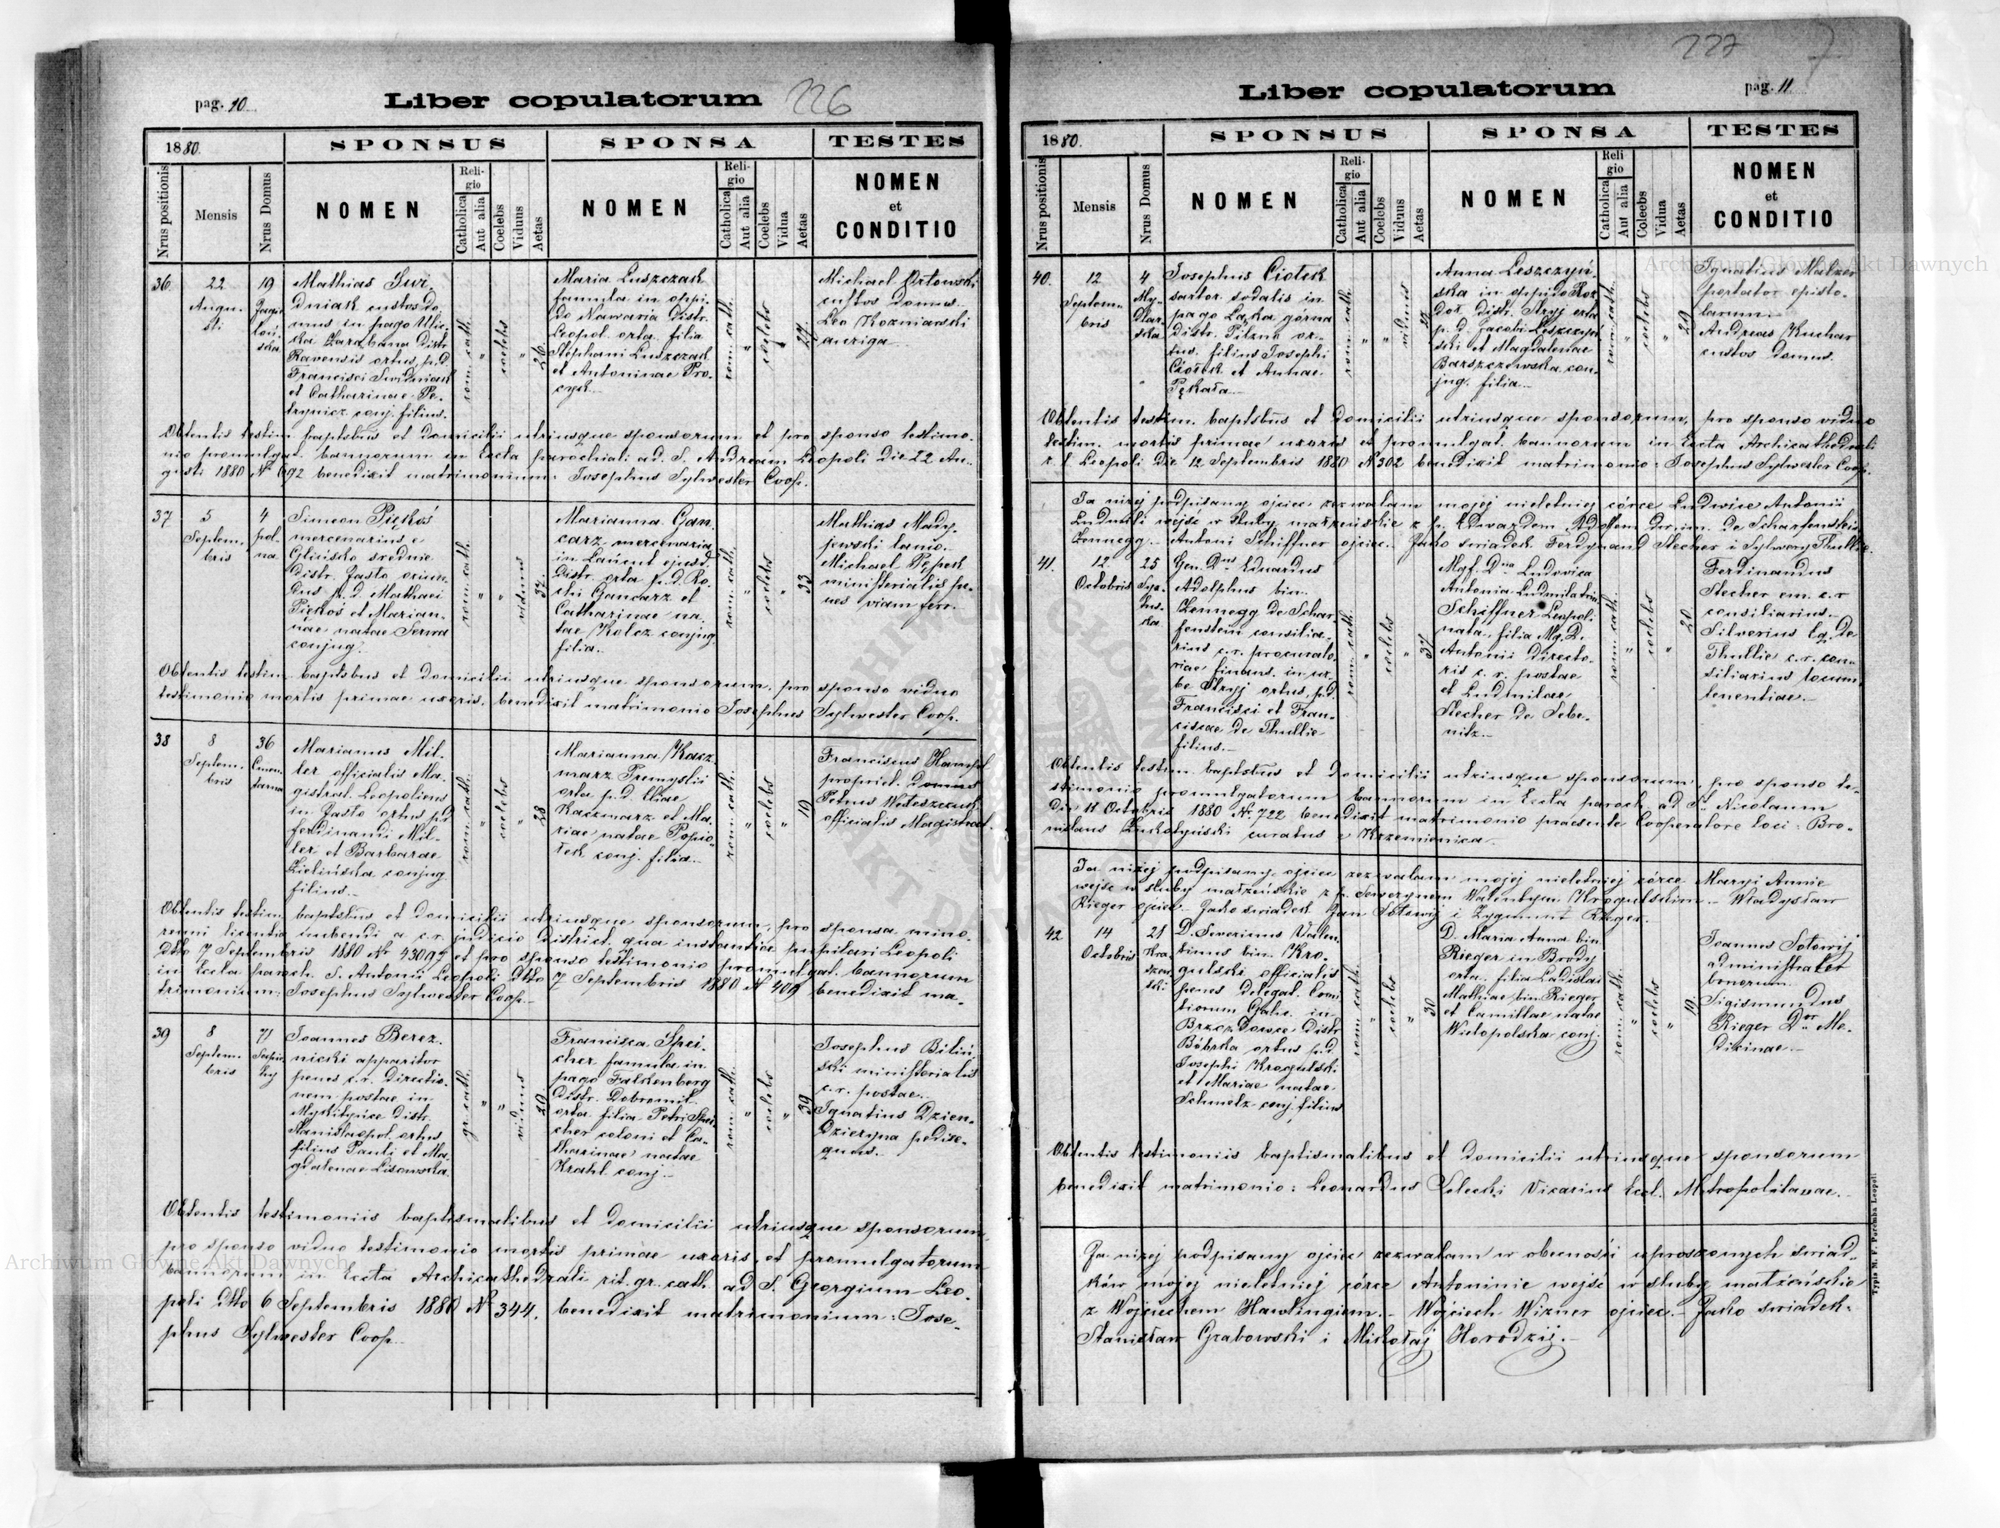 pag. 10
Liber copulatorum
226
1880.
SPONSUS
SPONSA
TESTES
Nrus positionis
Mensis
Nrus Domus
NOMEN
Religio
Catholica
Aut alia
Coelebs
Viduus
Aetas
NOMEN
Religio
Catholica
Aut alia
Coelebs
Vidua
Aetas
NOMEN
et
CONDITIO
36
22
Augusti
19
Mathias Świ-
dniak custos do-
mus in pago
Zarębana Distr.
Ravensis ortus p.d.
Francisci Świdniak
et Catharinae Pe-
trynicz conj. filius.
rom. cath.
"
coelebs
"
26
Maria Luszczak
famula in oppi-
do Nawaria Distr.
Leopol. orta filia
Stephani Luszczak
et Antoninae Pro-
cyk.
rom. cath.
"
coelebs
"
27
Michael Ortowski
custos domus.
Leo Kozniarski
auriga.
Obtentis testim. baptsbus et domicilii utriusque sponsorum et pro sponso testimo-
nio promulgat. bannorum in Eccta parochiali ad. S. Andream Leopoli Die 22 Au-
gusti 1880 N. 692 benedixit matrimonium: Josephus Sylwester Coop.
37
5
Septem-
bris
4
Simeon Piękoś
mercenarius e
Glinisko średnie
Distr. Jasło oriun-
dus p.d. Mathaei
Piękoś et Marian-
nae natae Serwa
conjug.
rom. cath.
"
"
viduus
32
Marianna Gan-
carz mercenaria
in Łańcut ejusd.
Distr. orta p.d. Ro-
chi Gancarz et
Catharinae na-
tae Kolcz conjug.
filia.
rom. cath.
"
coelebs
"
33
Mathias Mady-
jewski lanio.
Michael Pępek
ministerialis pe-
nes viam ferr.
Obtentis testim. baptsbus et domicilii utriusque sponsorum, pro sponso viduo
testimonio mortis primae uxoris, benedixit matrimonio Josephus Sylwester Coop.
38
8
Septem-
bris
36
Cmen-
tarna
Marianus Mil-
ler officialis Ma-
gistrat. Leopoliens.
in Jasło ortus p.d.
Ferdinandi Mil-
ler et Barbarae
Zielińska conjug.
filius.
rom. cath.
"
coelebs
"
28
Marianna Kacz-
marz Premyslii
orta p.d. Eliae
Kaczmarz et Ma-
riae natae Popio-
łek conj. filia.
rom. cath.
"
coelebs
"
19
Franciscus Hampel
propriet. Domus
Petrus
officialis Magistrat.
Obtentis testim. baptsbus et domicilii utriusque sponsorum, pro sponsa mino-
renni licentia nubendi a c.r. judicio district. qua instantiae pupilari Leopoli
dtto 7 Septembris 1880 N 43097 et pro sponso testimonio promulgat. bannorum
in Eccta paroch. S. Antonii Leopoli dtto 7 Septembris 1880 N 409 benedixit ma-
trimonium: Josephus Sylwester Coop.
39
8
Septem-
bris
71
Joannes Berez-
nicki apparitor
penes c.r. Directio-
nem postae in
Mykitynce Distr.
Stanislaopol. ortus
filius Pauli et Ma-
gdalenae Lisowska.
gr. cath.
"
"
viduus
Francisca Spei-
cher famula in
pago Falkenberg
Distr. Dobromil
orta filia Petri Spei-
cher coloni et Ca-
tharinae natae
Krahl conj.
rom. cath.
"
coelebs
"
39
Josephus Biliń-
ski ministerialis
c.r. postae.
Ignatius Dzien-
dzieryna pedise-
quus.
Obtentis testimoniis baptismalibus et domicilii utriusque sponsorum,
pro sponso viduo testimonio mortis primae uxoris, et promulgatorum
bannorum in Eccta Archicathedrali rit. gr. cath. ad S. Georgium Leo-
poli dtto 6 Septembris 1880 N. 344. benedixit matrimonium: Jose-
phus Sylwester Coop.
227
Liber copulatorum
pag. 11
1880.
SPONSUS
SPONSA
TESTES
Nrus positionis
Mensis
Nrus Domus
NOMEN
Religio
Catholica
Aut alia
Coelebs
Viduus
Aetas
NOMEN
Religio
Catholica
Aut alia
Coleebs
Vidua
Aetas
NOMEN
et
CONDITIO
40.
12
Septem-
bris
4
Josephus Ciołek
sartor. sodalis in
pago Łąka górna
Distr. Pilzno or-
tus. filius Josephi
Ciołek et Annae
Pękała.
rom. cath.
"
"
viduus
Anna Leszczyń-
ska in oppido Roz-
doł. Distr. Stryj orta
p. d. Jacobi Leszczyń-
ski et Magdalenae
Barszczewska con-
jug. filia.
rom. cath.
"
coelebs
"
29
Ignatius Malzer
portator episto-
larum.
Andreas Kuchar
custos domus.
Obtentis testim. baptsbus et domicilii utriusque sponsorum, pro sponso viduo
testim. mortis primae uxoris et promulgat. bannorum in Eccta Archicathedrali
r. l. Leopoli Die 12 Septembris 1880 N 302 benedixit matrimonio: Josephus Sylwester Coop.
Ja niżej podpisany ojciec zezwalam mojej nieletniej córce Ludwice Antonii
Ludmili wejść w śluby małżeńskie z p. Edwardem Adolfem dwojm. de Scharfenstein
Hennegg. Antoni Schiffner ojciec. Jako świadek Ferdynand Stecher i Sylwery Thullie.
41.
12
Octobris
25
Gen. Dnus Eduardus
Adolphus bin.
Hennegg de Schar-
fenstein consilia-
rius c.r. procurato-
riae finans. in ur-
be Stryj ortus p.d.
Francisci et Fran-
ciscae de Thullie
filius.
rom. cath.
"
coelebs
"
Mgf. Dna Ludovica
Antonia Ludmila trin.
Schiffner Leopol.
nata, filia Mg. D.
Antonii Directo-
ris c. r. postae
et Ludmilae
Stecher de Sebe-
nitz.
rom. cath.
"
coelebs
"
20
Ferdinandus
Stecher em. c.r.
consiliarius.
Silverius Eq. de
Thullie c.r. con-
siliarius locum-
tenentiae.
Obtentis testim. baptsbus et domicilii utriusque sponsorum, pro sponso te-
stimonio promulgatorum bannorum in Eccta paroch. ad St. Nicolaum
Die 11 Octobris 1880 N. 722 benedixit matrimonio praesente Cooperatore loci: Bro-
nislaus curatus e Krzemienica.
Ja niżej podpisany ojciec zezwalam mojej nieletniej córce Maryi Annie
wejść w śluby małżeńskie z p. Sewerynem Walentym Krogulskim. Władysław
Rieger ojciec. Jako świadek Jan Sołowij i Zygmunt Rieger.
42.
14
Octobris
21
Kra-
szew-
ski
D. Severinus Valen-
tinus bin. Kro-
gulski officialis
penes delegat. Comi-
tiorum Galic. in
Brzozdowce Distr.
Bóbrka ortus p.d.
Josephi Krogulski
et Mariae natae
Schmelz conj. filius
rom. cath.
"
coelebs
"
30
D. Maria Anna bin.
Rieger in Brody
orta. filia Ladislai
Mathiae bin Rieger
et Camillae natae
Wielopolska conj.
rom. cath.
"
coelebs
"
19
Joannes Sołowij
administrator
bonorum.
Sigismundus
Rieger Dor Me-
dicinae.
Obtentis testimoniis baptismalibus et domicilii utriusque sponsorum
benedixit matrimonio: Leonardus Solecki Vicarius Eccl. Metropolitanae.
Ja niżej podpisany ojciec zezwalam w obecności uproszonych świad-
ków mojej nieletniej córce Antoninie wejść w śluby małżeńskie
z Wojciechem Hawlingium. Wojciech Wizner ojciec. Jako świadek.
Stanisław Grabowski i Mikołaj Horodzij.
Typis M. F. Poremba Leopoli
Archiwum Główne Akt Dawnych
Archiwum Główne Akt Dawnych
ARCHIWUM GŁÓWNE AKT DAWNYCH